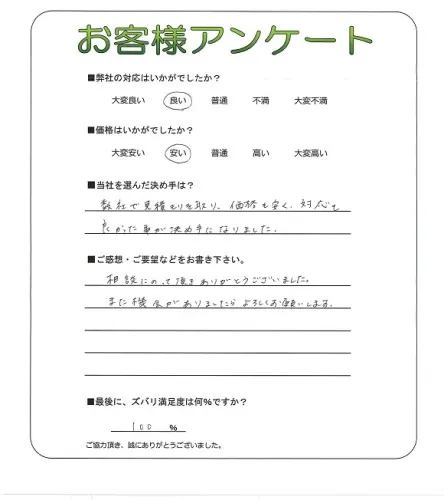 お客様アンケート
■弊社の対応はいかがでしたか?
大変良い 良い 普通 不満 大変不満
■価格はいかがでしたか?
大変安い 安い 普通 高い 大変高い
■当社を選んだ決め手は?
数社で見積もりを取り、価格も安く、対応も
良かった事が決め手になりました。
■ご感想・ご要望などをお書き下さい。
相談にのって頂きありがとうございました。
また機会がありましたらよろしくお願いします。
■最後に、ズバリ満足度は何%ですか?
100 %
ご協力頂き、誠にありがとうございました。